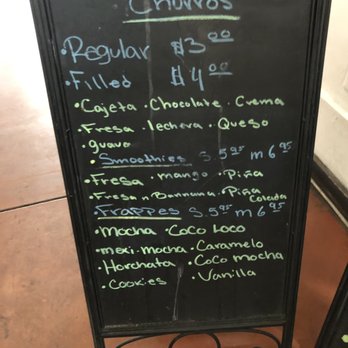 Churros
• Regular $3.00
• Filled $4.00
• Cajeta • Chocolate • Crema
• Fresa • lechera • Queso
• guava
• Smoothies S 5.95 m 6.95
• Fresa • mango • Piña
• Fresa n Bannana • Piña Colada
• Frappes S. 5.95 m 6.95
• Mocha • Coco Loco
• mexi-mocha • Caramelo
• Horchata • Coco mocha
• Cookies • Vanilla